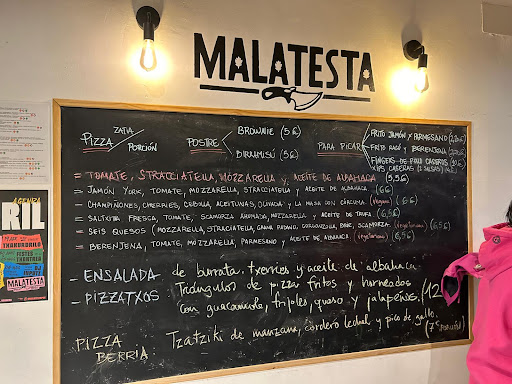 MALATESTA
PIZZA
ZATIA
PORCIÓN
POSTRE
BROWNIE (5€)
BIRRAMISÚ (5€)
PARA PICAR
FRITO JAMÓN Y PARMESANO
FRITO RAGÚ Y BERENJENA
FINGERS DE POLLO CASEROS
= TOMATE, STRACCIATELLA, MOZZARELLA y ACEITE DE ALBAHACA (5,5€)
= JAMÓN YORK, TOMATE, MOZZARELLA, STRACCIATELLA y ACEITE DE ALBAHACA (6€)
= CHAMPIÑONES, CHERRIES, CEBOLLA, ACEITUNAS, OLIVADA y LA MASA CON CÚRCUMA (vegana) (6€)
= SALTXITXA FRESCA, TOMATE, SCAMORZA AHUMADA, MOZZARELLA y ACEITE DE TRUFA (6,5€)
= SEIS QUESOS (MOZZARELLA, STRACCIATELLA, GRANA PADANO, GORGONZOLA, BRIE, SCAMORZA) (vegetariana) (6,5€)
= BERENJENA, TOMATE, MOZZARELLA, PARMESANO y ACEITE DE ALBAHACA (vegetariana) (6,5€)
- ENSALADA de burrata, txerries y aceite de albahaca
- PIZZATXOS: Triángulos de pizza fritos y horneados
con guacamole, frijoles, queso y jalapeños. (12
PIZZA
BERRIA:
Tzatziki de manzana, cordero lechal y pico de gallo.
(7€ porción)
AGENDA
RIL
MALATESTA